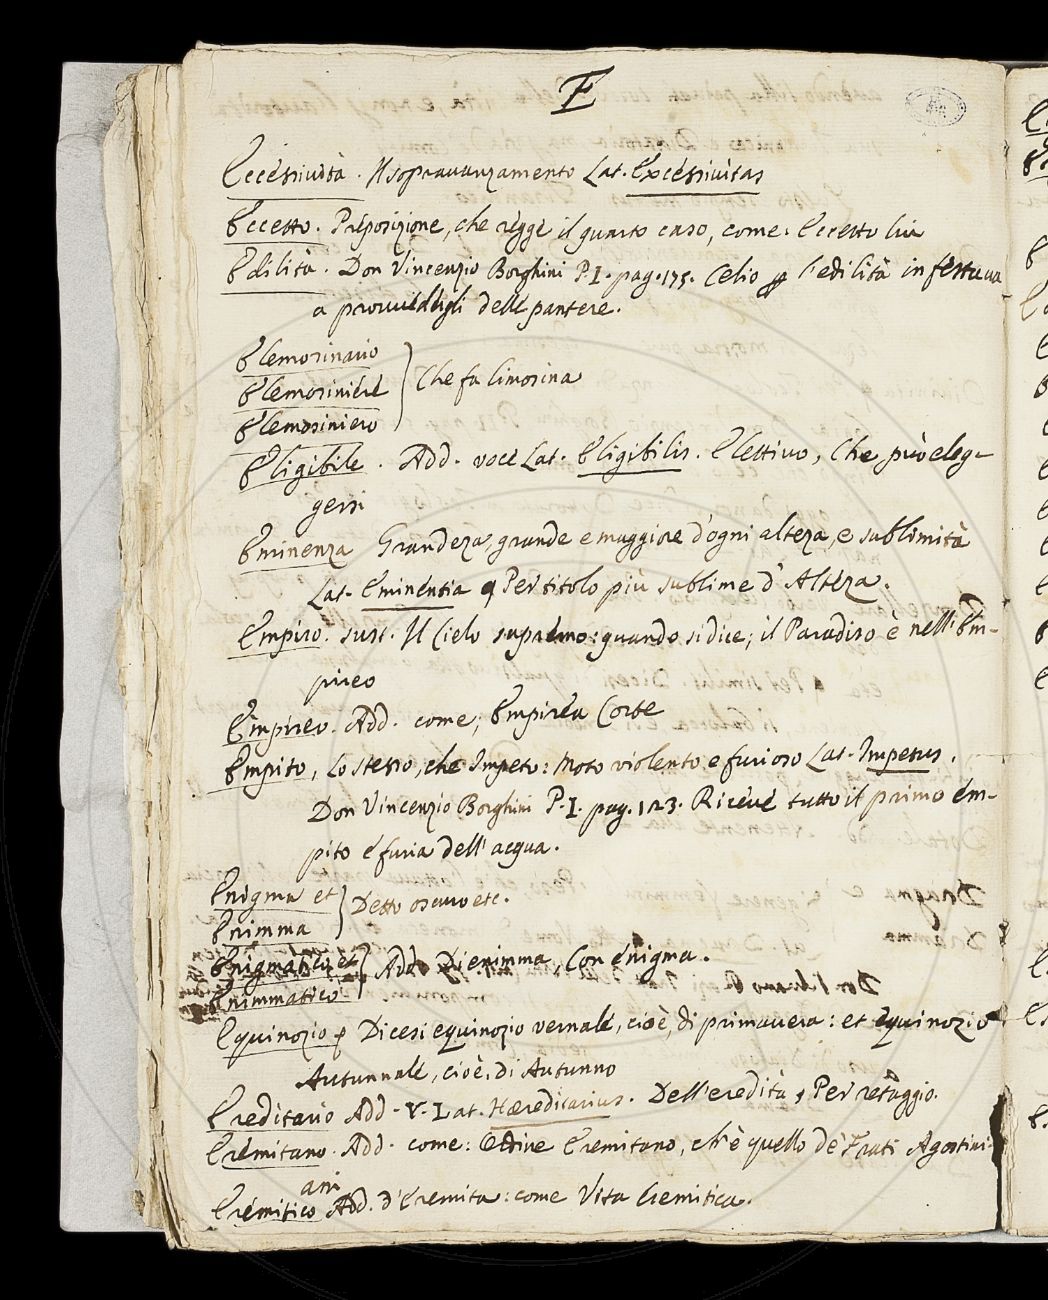 E
Eccessività. Il sopravanzamento Lat. Excessivitas
Eccetto. Preposizione, che regge il quarto caso, come: Eccetto lui
Edilità. Don Vincenzio Borghini P. I. pag. 175. Celio l'edilità in
a provvedergli delle pantere.
Elemosinario
Elemosiniere
Elemosiniero
Che fa limosina
Eligibile. Add. voce Lat. Eligibilis. Elettivo, Che può eleg-
gersi
Eminenza Grandeza, grande e maggiore d'ogni alteza, e sublimità
Lat. Eminentia Per titolo più sublime d'Alteza.
Empiro. sust. Il Cielo supremo: quando si dice; il Paradiso è nell'Em-
pireo
Empireo. Add. come; Empirea Corte
Empito, Lo stesso, che Impeto: Moto violento, e furioso Lat. Impetus.
Don Vincenzio Borghini P. I. pag. 123. Riceve tutto il primo em-
pito e furia dell'acqua.
Enigma et
Enimma
Detto oscuro etc.
Enigmatico et
Enimmatico
Add. D'enimma, Con enigma.
Equinozio Dicesi equinozio vernale, cioè, di primavera: et equinozio
Autunnale, cioè, di Autunno
Ereditario Add. V. Lat. Hæreditarius. Dell'eredità, Per retaggio.
Eremitano. Add. come: Ordine Eremitano, ch'è quello de' Frati Agostini-
ani
Eremitico Add. d'Eremita: come Vita Eremitica.